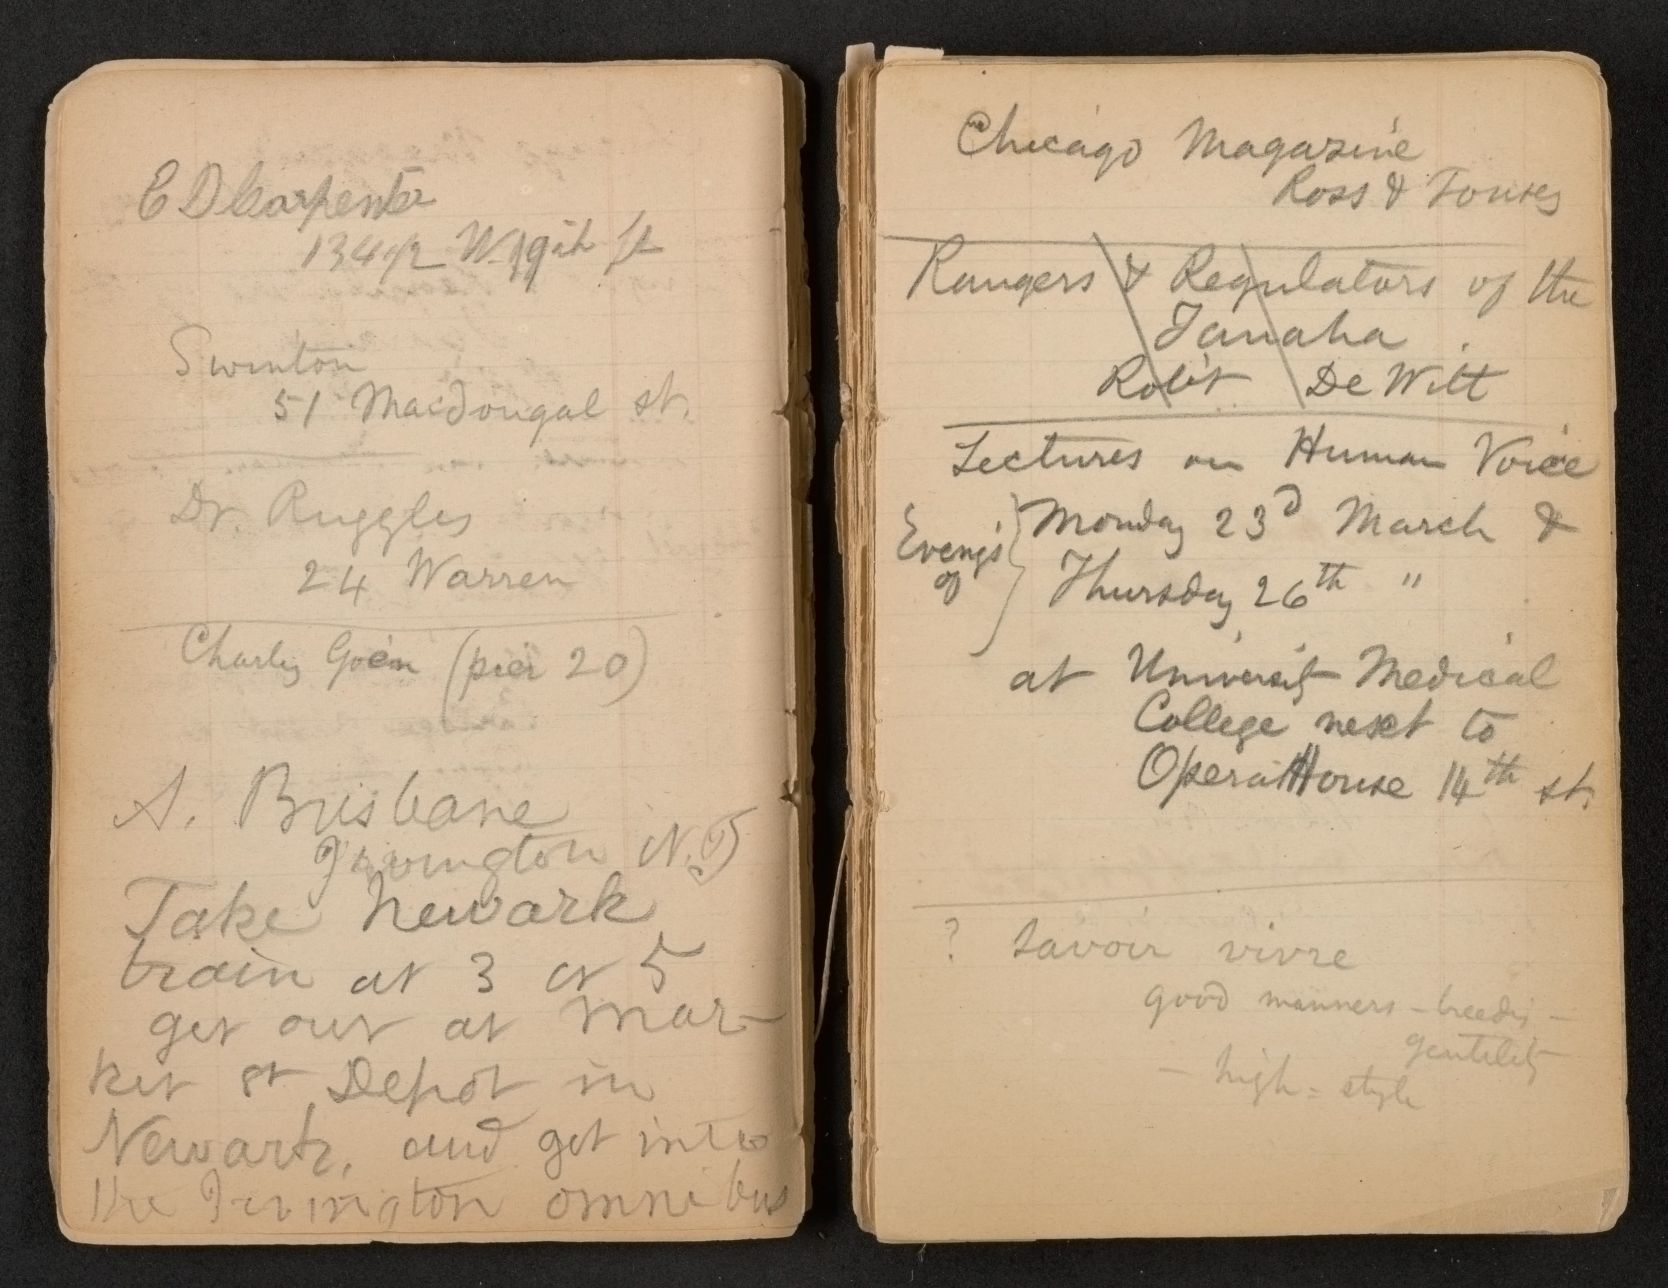 E D Carpenter
134 1/2 W. 19th st
Swinton
51 Macdougal st.
Dr. Ruggles
24 Warren
Charley Goen (pier 20)
A. Brisbane
Irvington N.J
Take Newark
train at 3 or 5
get out at Mar-
ket st Depot in
Newark, and get into
the Irvington omnibus
Chicago Magazine
Ross & Tousey
Rangers & Regulators of the
Tanaha
Rob't De Witt
Lectures on Human Voice
Eveng's of
Monday 23d March &
Thursday 26th "
at University Medical
College next to
Opera House 14th st.
? savoir vivre
good manners – breedi –
gentility
– high = style